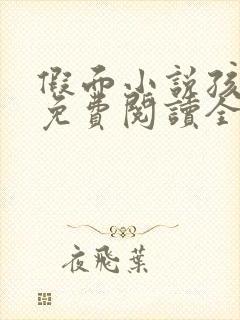 假而小説孩
免費閱讀全
夜飛葉